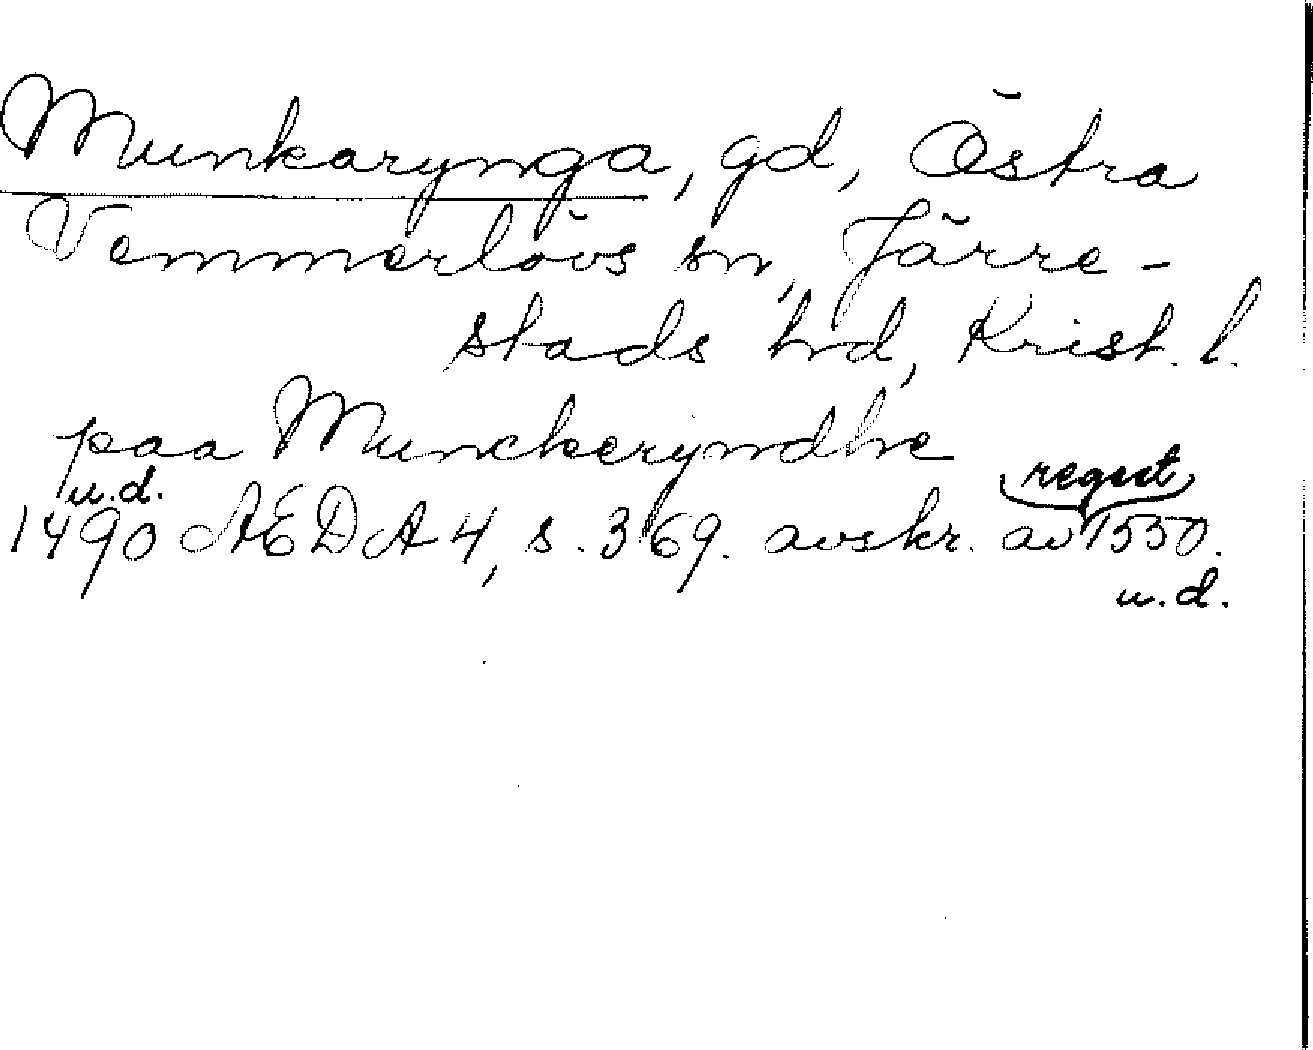 Munkarynga, gd, Östra
Vemmerlövs sn, Järre-
stads hrd, Krist. l.
paa Munckeryndhe
u.d.
regest
1490 AEDA 4, s. 369. avskr. av 1550.
u.d.